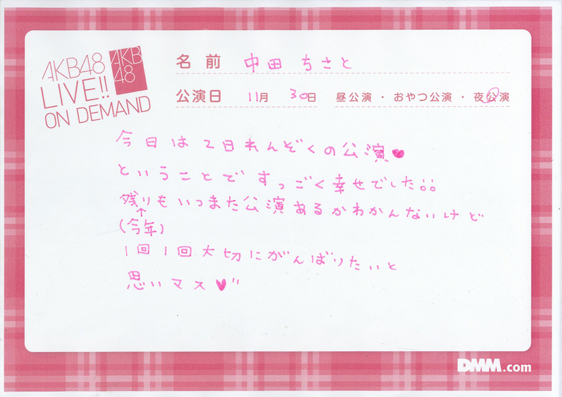 AKB48
LIVE!!
ON DEMAND
AKB
48
名前 中田 ちさと
公演日 11月 30日 昼公演 ・ おやつ公演 ・ 夜公演
今日は2日れんぞくの公演♥
ということですっごく幸せでした。。
残りもいつまた公演あるかわかんないけど
↑
(今年)
1回1回大切にがんばりたいと
思いマス♥"
DMM.com